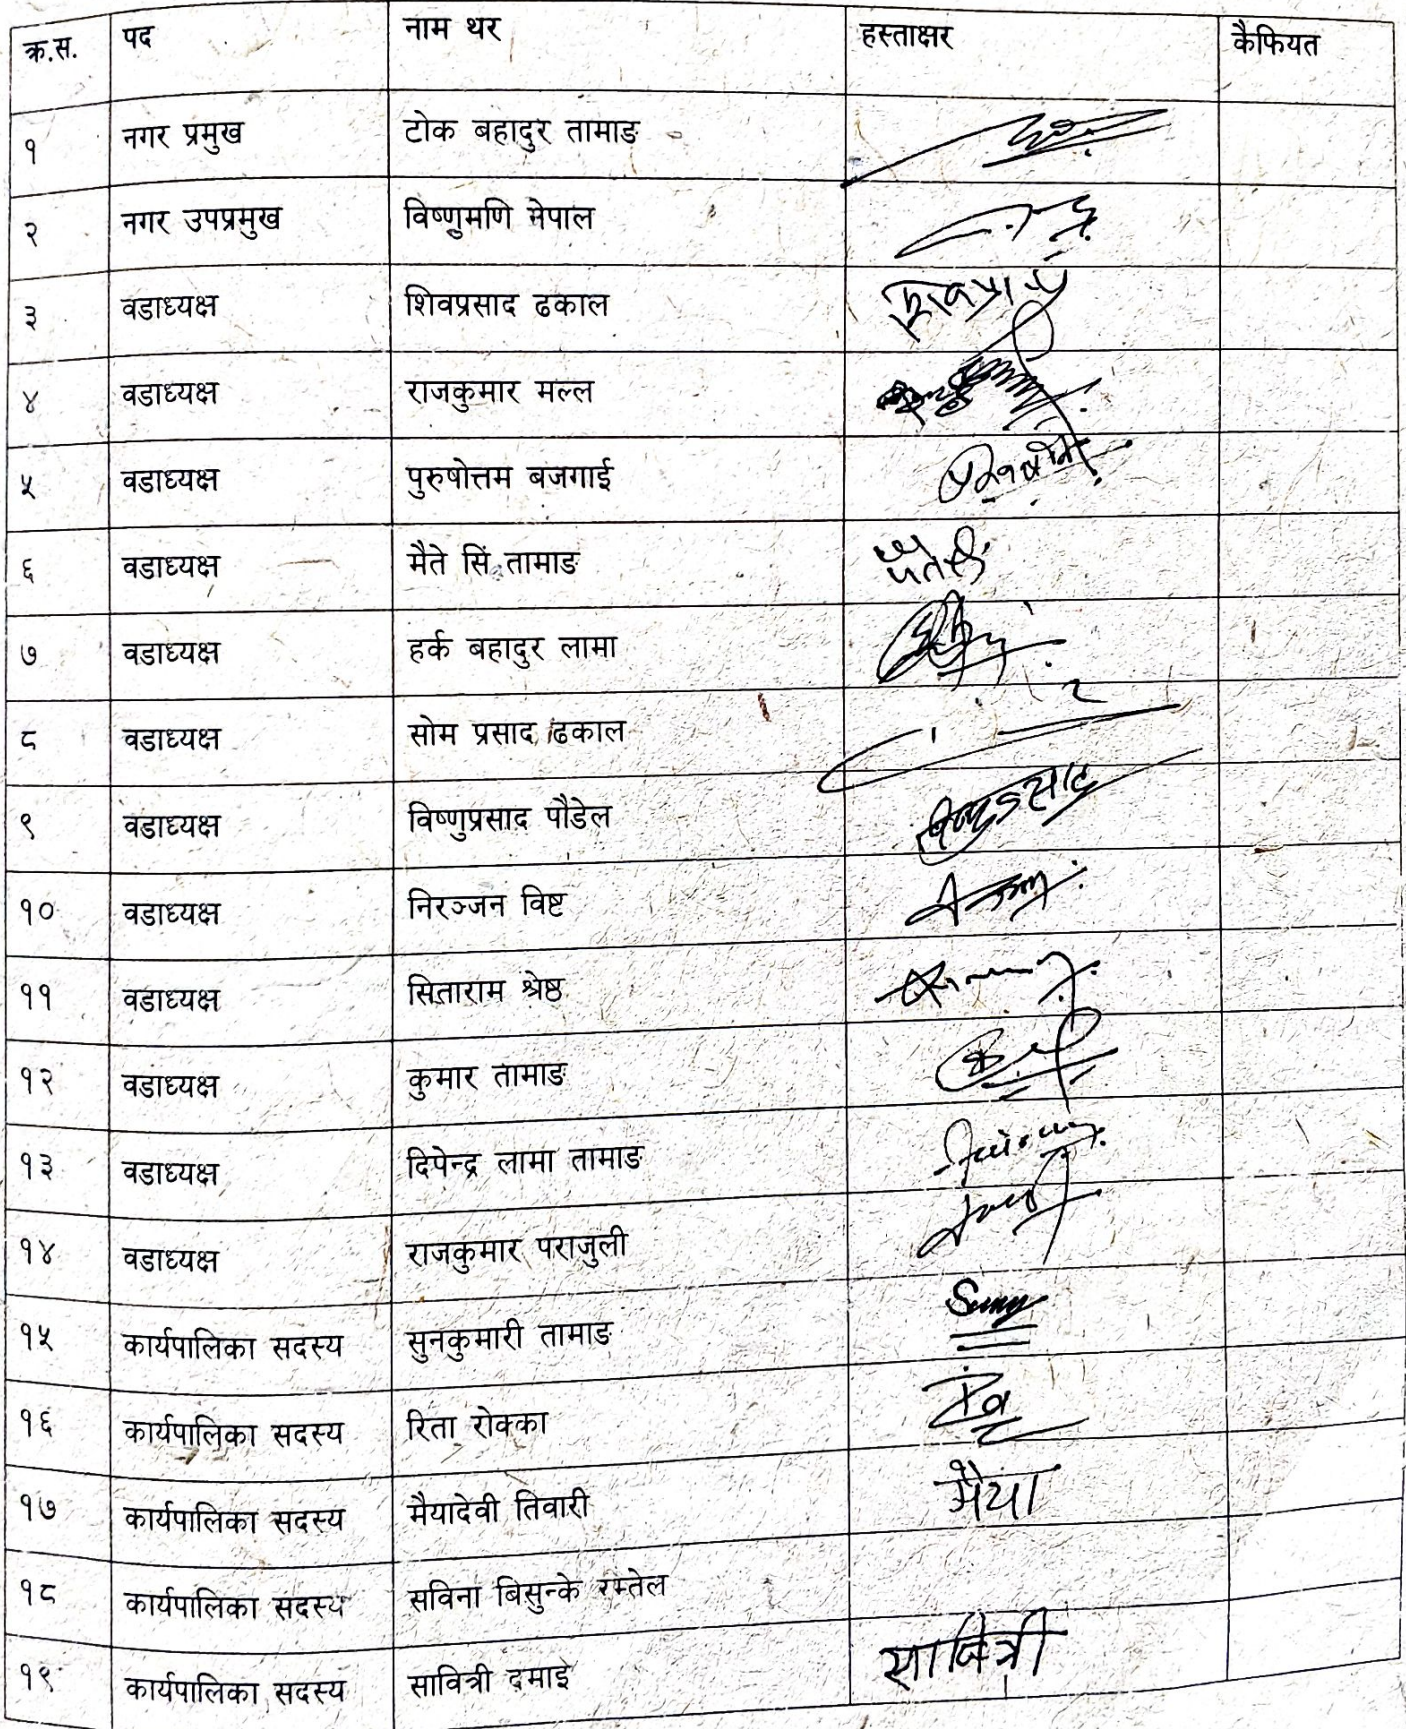 क्र.स. पद नाम थर हस्ताक्षर कैफियत
१ नगर प्रमुख टोक बहादुर तामाङ
२ नगर उपप्रमुख विष्णुमणि नेपाल
३ वडाध्यक्ष शिवप्रसाद ढकाल
४ वडाध्यक्ष राजकुमार मल्ल
५ वडाध्यक्ष पुरुषोत्तम बजगाई
६ वडाध्यक्ष मैते सिं तामाङ
७ वडाध्यक्ष हर्क बहादुर लामा
८ वडाध्यक्ष सोम प्रसाद ढकाल
९ वडाध्यक्ष विष्णुप्रसाद पौडेल
१० वडाध्यक्ष निरञ्जन विष्ट
११ वडाध्यक्ष सिताराम श्रेष्ठ
१२ वडाध्यक्ष कुमार तामाङ
१३ वडाध्यक्ष दिपेन्द्र लामा तामाङ
१४ वडाध्यक्ष राजकुमार पराजुली
१५ कार्यपालिका सदस्य सुनकुमारी तामाङ
१६ कार्यपालिका सदस्य रिता रोक्का
१७ कार्यपालिका सदस्य मैयादेवी तिवारी मैया
१८ कार्यपालिका सदस्य सविना बिसुन्के रम्तेल
१९ कार्यपालिका सदस्य सावित्री दमाइ सावित्री